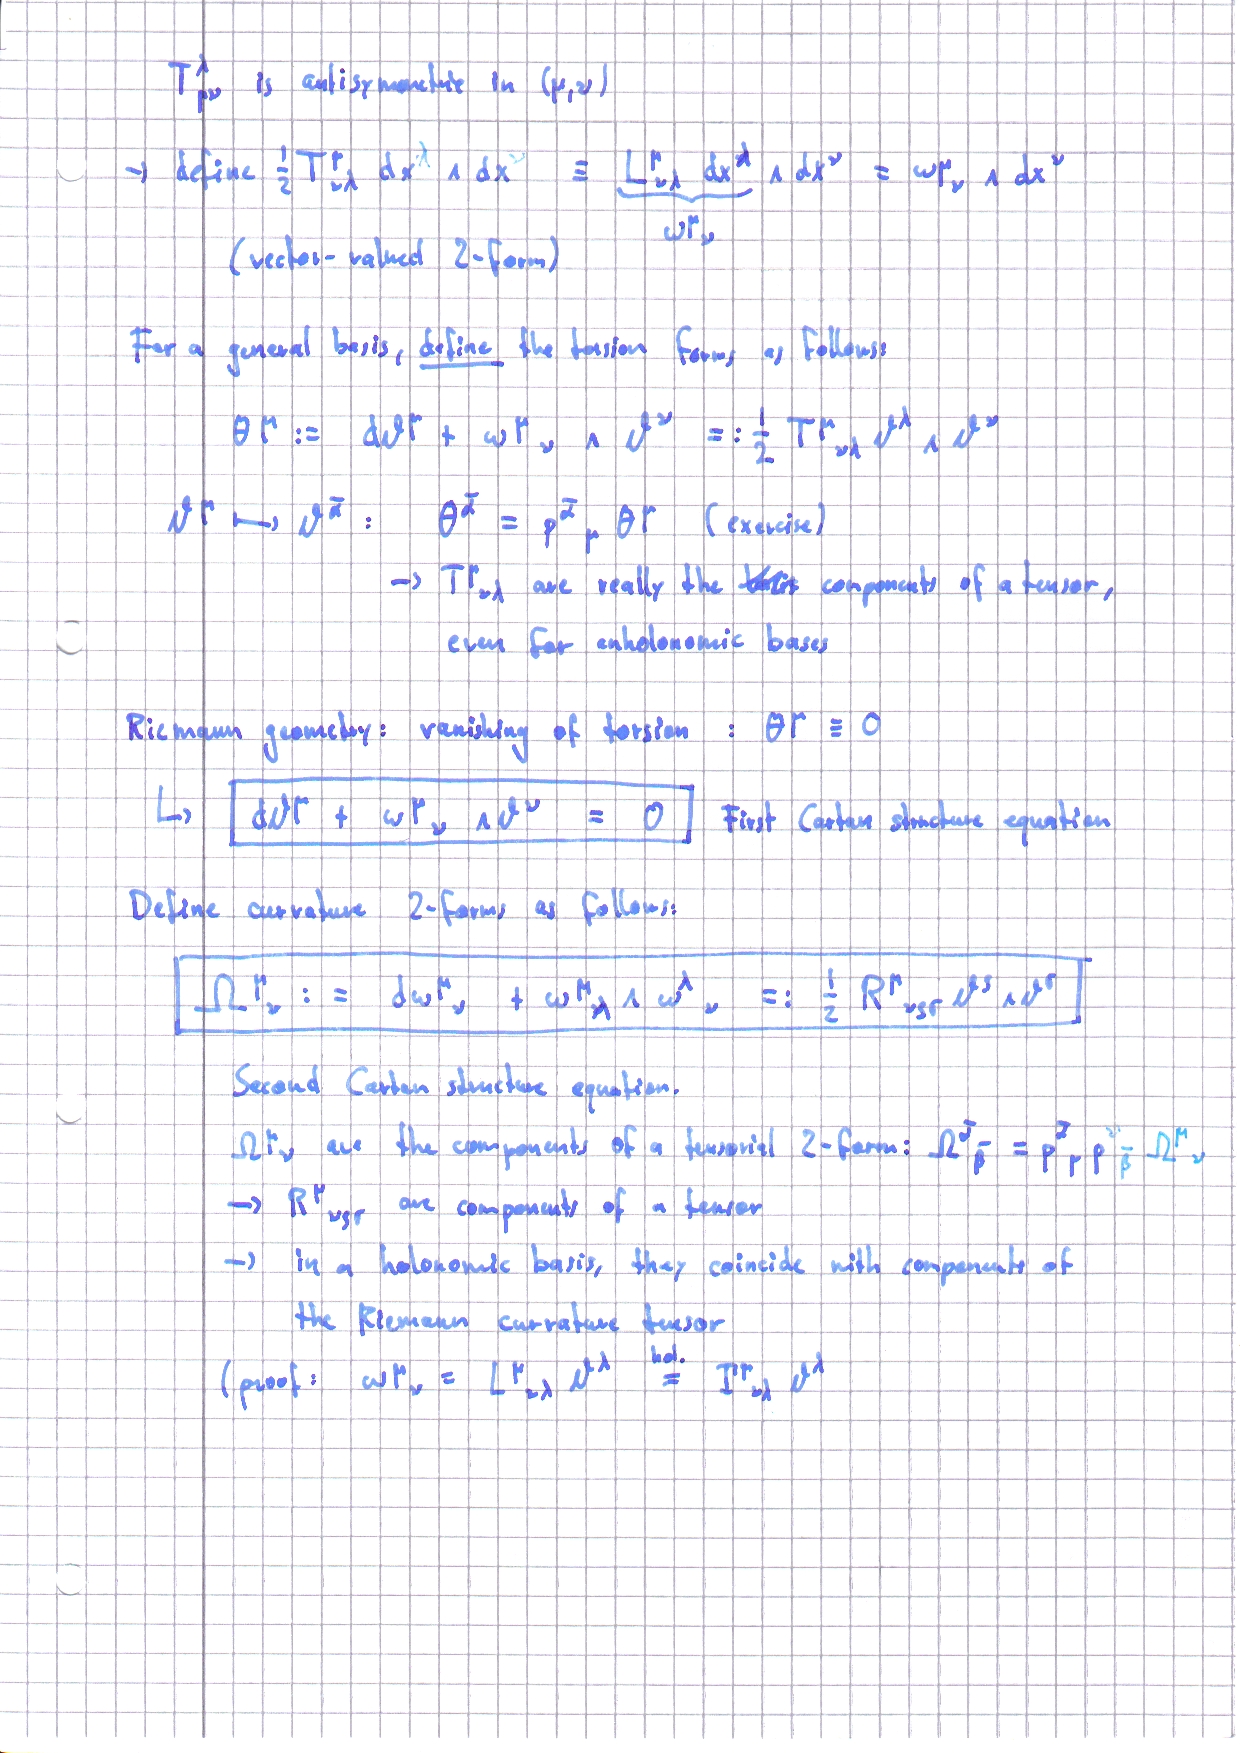 T^λ_μν is antisymmetric in (μ,ν)
→ define ½ T^μ_νλ dx^λ ∧ dx^ν ≡ L^μ_νλ dx^λ ∧ dx^ν = ω^μ_ν ∧ dx^ν
ω^μ_ν
(vector-valued 2-form)
For a general basis, define the torsion forms as follows:
θ^μ := dϑ^μ + ω^μ_ν ∧ ϑ^ν =: ½ T^μ_νλ ϑ^λ ∧ ϑ^ν
ϑ^μ ↦ ϑ^ᾱ : θ^ᾱ = p^ᾱ_μ θ^μ (exercise)
→ T^μ_νλ are really the components of a tensor,
even for anholonomic bases
Riemann geometry: vanishing of torsion : θ^μ ≡ 0
↳ dϑ^μ + ω^μ_ν ∧ ϑ^ν = 0 First Cartan structure equation
Define curvature 2-forms as follows:
Ω^μ_ν := dω^μ_ν + ω^μ_λ ∧ ω^λ_ν =: ½ R^μ_νρσ ϑ^ρ ∧ ϑ^σ
Second Cartan structure equation.
Ω^μ_ν are the components of a tensorial 2-form: Ω^ᾱ_β̄ = p^ᾱ_μ p^ν_β̄ Ω^μ_ν
→ R^μ_νρσ are components of a tensor
→ in a holonomic basis, they coincide with components of
the Riemann curvature tensor
(proof: ω^μ_ν = L^μ_νλ ϑ^λ hol.= Γ^μ_νλ ϑ^λ